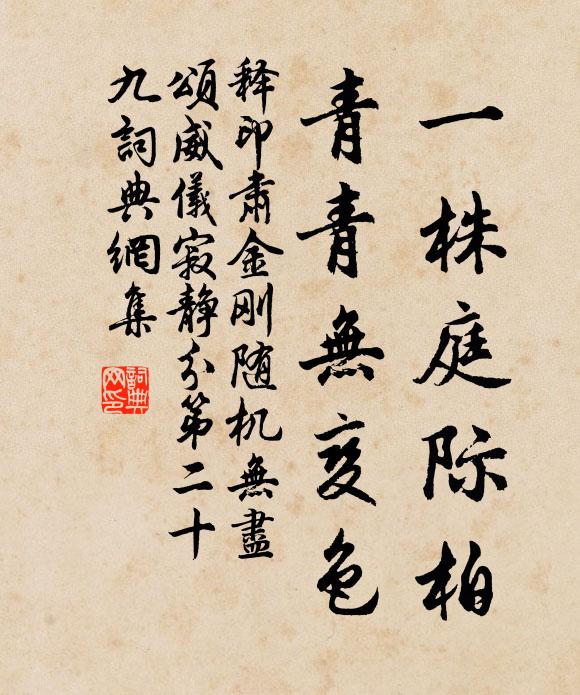 一株庭际柏
青青無变色
释印肃金刚随机無盡
頌威儀寂静分第二十
九詞典網集
詞典
网印